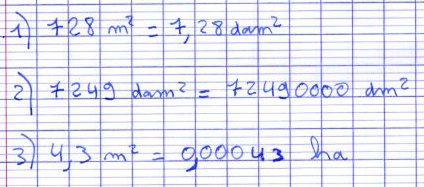 1) 728 m² = 7,28 dam²
2) 7249 dam² = 72490000 dm²
3) 4,3 m² = 0,00043 ha